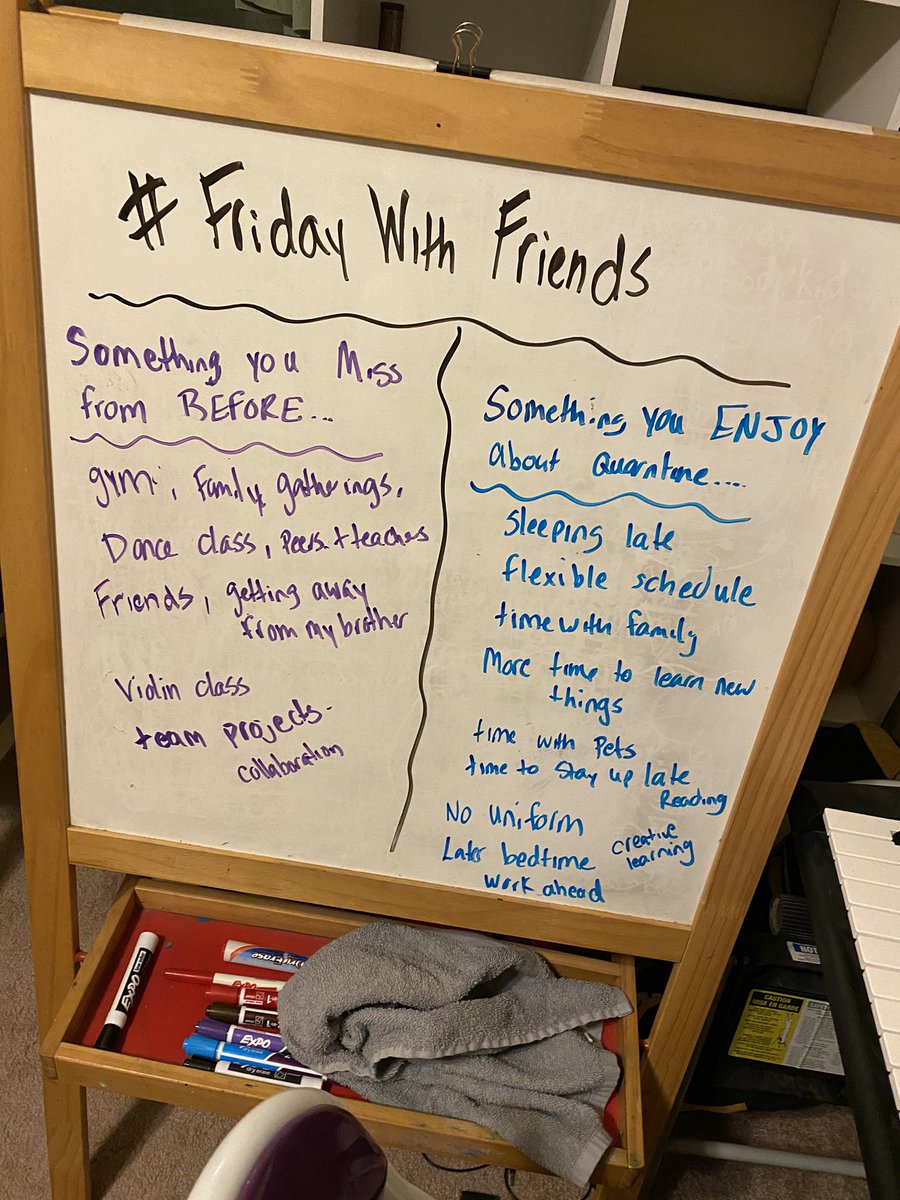 # Friday With Friends
Something you Miss
from BEFORE...
gym, Family gatherings,
Dance class, Peers + teaches
Friends, getting away
from my brother
Violin class
team projects-
collaboration
Something you ENJOY
about Quarntine....
Sleeping late
flexible schedule
time with family
More time to learn new
things
time with Pets
time to stay up late
Reading
No uniform
creative
learning
Later bedtime
work ahead
EXPO
EXPO
CAUTION
MISE EN GARDE